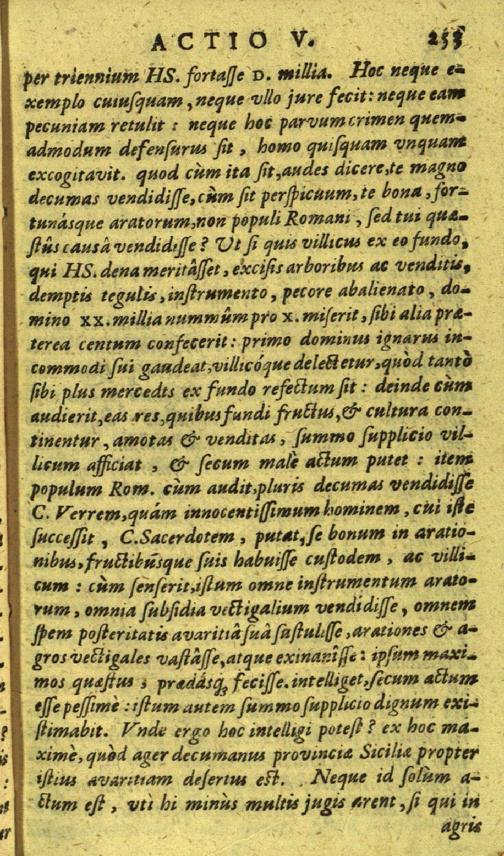 ACTIO V. 253
per triennium HS. fortasse D. millia. Hoc neque e-
xemplo cuiusquam, neque vllo jure fecit: neque eam
pecuniam retulit: neque hoc parvum crimen quem-
admodum defensurus sit, homo quisquam vnquam
excogitavit. quod cùm ita sit, audes dicere, te magno
decumas vendidisse, cùm sit perspicuum, te bona, for-
tunásque aratorum, non populi Romani, sed tui quæ-
stûs causâ vendidisse? Ut si quis villicus ex eo fundo,
qui HS. dena meritâsset, excisis arboribus ac venditis,
demptis tegulis, instrumento, pecore abalienato, do-
mino XX. millia nummûm pro X. miserit, sibi alia præ-
terea centum confecerit: primo dominus ignarus in-
commodi sui gaudeat, villicóque delectetur, quòd tantò
sibi plus mercedis ex fundo refectum sit: deinde cùm
audierit, eas res, quibus fundi fructus, & cultura con-
tinentur, amotas & venditas, summo supplicio vil-
licum afficiat, & secum malè actum putet: item
populum Rom. cùm audit, pluris decumas vendidisse
C. Verrem, quàm innocentissimum hominem, cui iste
successit, C. Sacerdotem, putat, se bonum in aratio-
nibus, fructibúsque suis habuisse custodem, ac villi-
cum: cùm senserit, istum omne instrumentum arato-
rum, omnia subsidia vectigalium vendidisse, omnem
spem posteritatis avaritiâ suâ sustulisse, arationes & a-
gros vectigales vastâsse, atque exinanisse: ipsum maxi-
mos quæstus, prædásq; fecisse. intelliget, secum actum
esse pessimè: istum autem summo supplicio dignum exi-
stimabit. Vnde ergo hoc intelligi potest? ex hoc ma-
ximè, quòd ager decumanus provinciæ Siciliæ propter
istius avaritiam desertus est. Neque id solùm a-
ctum est, vti hi minùs multis jugis arent, si qui in
agris